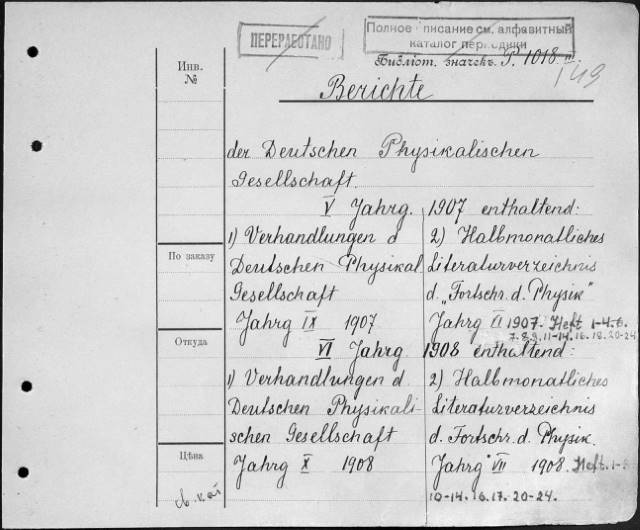 ПЕРЕРАБОТАНО
Полное описание см. алфавитный
каталог периодики
Библіот. значекъ P. 1018.
149
Инв.
№
Berichte
der Deutschen Physikalischen
Gesellschaft.
V Jahrg. 1907 enthaltend:
1) Verhandlungen d
Deutschen Physikal
Gesellschaft
Jahrg IX 1907
2) Halbmonatliches
Literaturverzeichnis
d. „Fortschr. d. Physik"
Jahrg VI 1907. Heft 1-4.6.
7.8.9.11-14.16.18.20-24
По заказу
Откуда
VI Jahrg. 1908 enthaltend:
1) Verhandlungen d.
Deutschen Physikali-
schen Gesellschaft
Jahrg X 1908
2) Halbmonatliches
Literaturverzeichnis
d. Fortschr. d. Physik.
Jahrg VII 1908. Heft. 1-
10-14.16.17.20-24.
Цѣна
св. кат